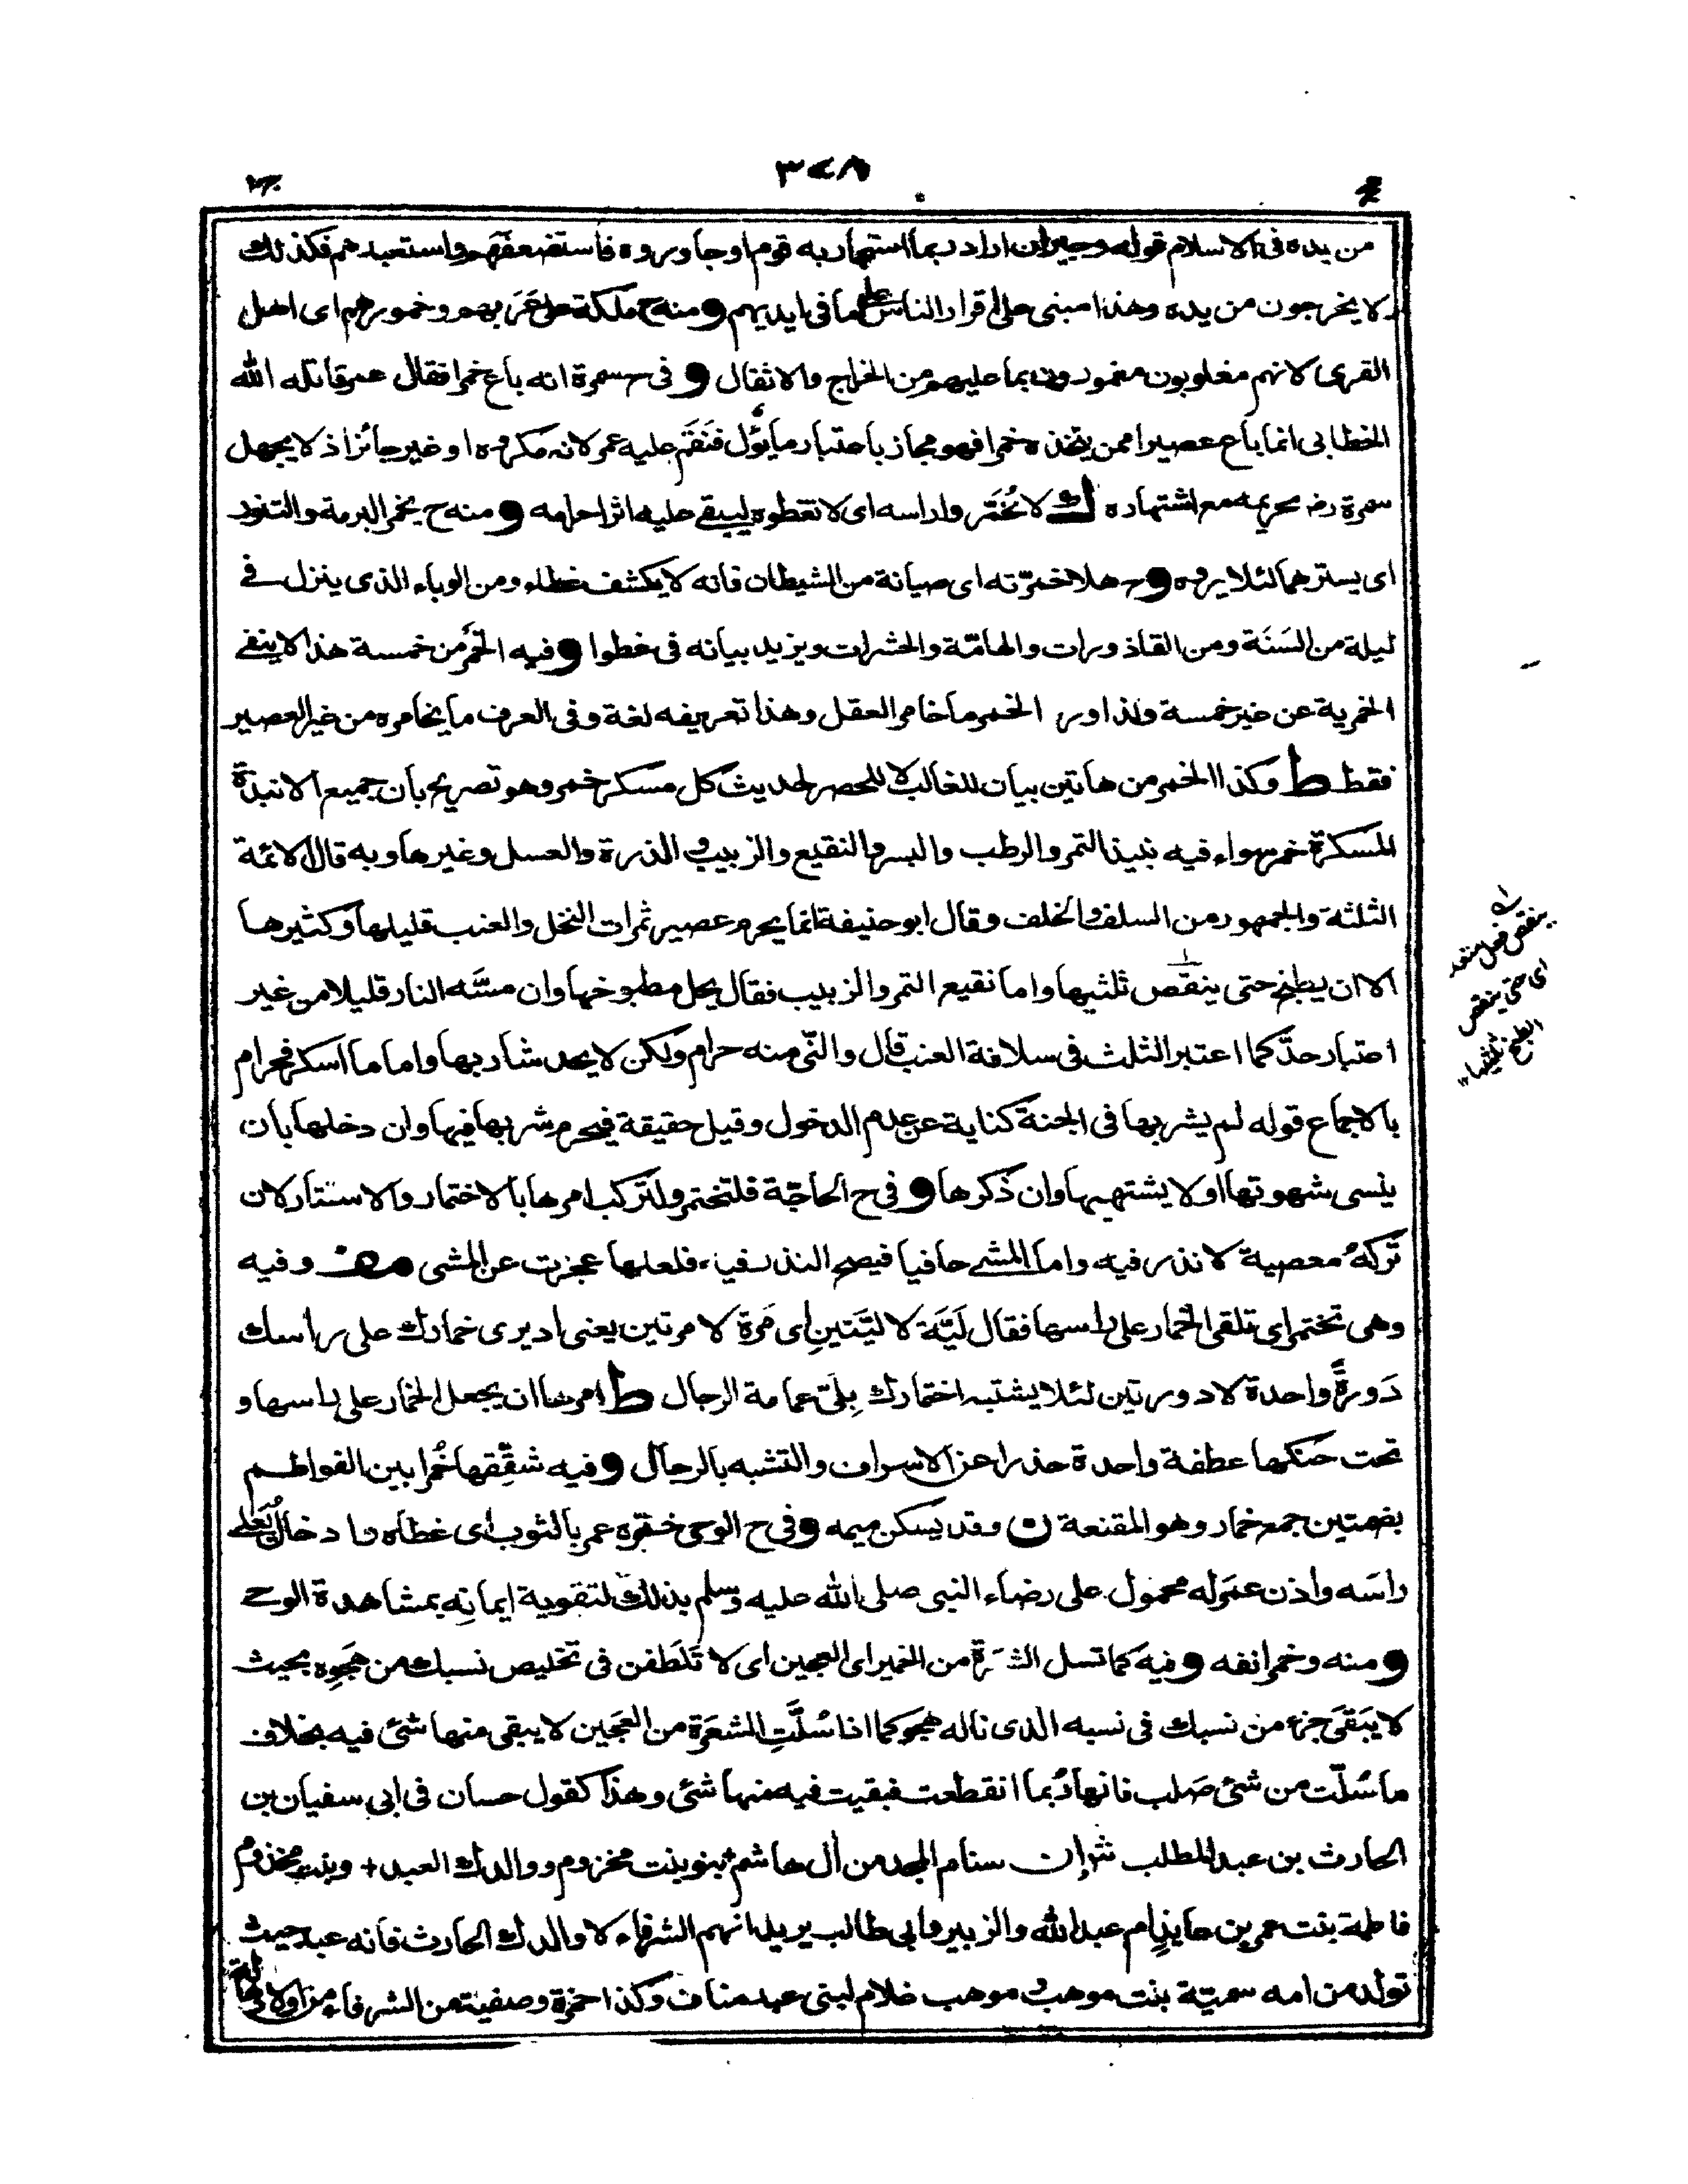 ٣٧٨
من يده فى الاسلام قوله وجيران اراد ربما استجار به قوم اوجاوروه فاستضعفهم واستعبدهم فكذلك
لا يخرجون من يده وهذا مبنى على اقرار الناس على ما فى ايديهم و منه ح ملكه على عَرَبهم وخمورهم اى اهل
القرى لانهم مغلوبون مغمورون بما عليهم من الخراج والاثقال و فى ح سمرة انه باع خمرا فقال عمر قاتله الله
الخطابى انما باع عصيرا ممن يتخذه خمرا فهو مجاز باعتبار ما يؤل فنَقَم عليه عمر لانه مكروه او غير جائز اذ لا يجهل
سمرة رض تحريمه مع اشتهاره ك لا تُخَمّر واراسه اى لا تغطوه ليبقى عليه اثر احرامه و منه ح يخمر البرمة والتنور
اى يسترهما لئلا يروه و ح هلا خمّرته اى صيانة من الشيطان فانه لا يكشف غطاء ومن الوباء الذى ينزل فى
ليلة من السَنَة ومن القاذورات والهامّة والحشرات ويزيد بيانه فى غطوا و فيه الخمر من خمسة هذا لا ينفى
الخمرية عن غير خمسة ولذا ور الخمر ما خامر العقل وهذا تعريفه لغة وفى العرف ما يخامره من غير العصير
فقط ط وكذا الخمر من هاتين بيان للغالب لا للحصر لحديث كل مسكر خمر وهو تصريح بان جميع الانبذة
المسكرة خمر سواء فيه نبيذ التمر والرطب والبسر والنقيع والزبيب و الذرة والعسل وغيرها وبه قال الائمة
الثلثة والجمهور من السلف والخلف وقال ابو حنيفة انما يحرم عصير ثمرات النخل والعنب قليلها وكثيرها
الا ان يطبخ حتى ينقص ثلثيها واما نقيع التمر والزبيب فقال يحل مطبوخها وان مسَّه النار قليلا من غير
اعتبار حدّ كما اعتبر الثلث فى سلافة العنب قال والنّى منه حرام ولكن لا يحد شاربها واما ما اسكر فحرام
بالاجماع قوله لم يشربها فى الجنة كناية عن عدم الدخول وقيل حقيقة فيحرم شربها فيها وان دخلها بان
ينسى شهوتها او لا يشتهيها وان ذكرها و فى ح الحاجّة فلتختمر ولتركب امرها بالاختمار والاستتار لان
تركهُ معصية لا نذر فيه واما المشى حافيا فيصح النذر فيه فلعلها عجزت عن المشى مف وفيه
وهى تختمر اى تلقى الخمار على راسها فقال لَيَّة لا ليَّتينِ اى مَرة لا مرتين يعنى اديرى خمارك على راسك
دَورةً واحدة لا دورتين لئلا يشتبه اختمارك بِلَىّ عمامة الرجال ط امرها ان يجعل الخمار على راسها و
تحت حنكها عطفة واحدة حذرا عن الاسراف والتشبه بالرجال و فيه شقِّقها خُمُرا بين الفواطم
بضمتين جمع خمار وهو المقنعة ن وقد يسكن ميمه و فى ح الوحى خمّره عمر بالثوب اى غطاه و ادخال يَعلى
راسَه واذن عمر له محمول على رضاء النبى صلى الله عليه وسلم بذلك لتقوية ايمانِه بمشاهدة الوحى
و منه وخمر انفه و فيه كما تسل الشعرة من الخمير اى العجين اى لا تَلَطفن فى تخليص نسبك من هجوِه بحيث
لا يبَقىَ جزء من نسبك فى نسبه الذى ناله هجو كما اذا سُلَّتِ الشعَرة من العجَين لا يبقى منها شئ فيه بخلاف
ما سُلّت من شئ صَلب فانها رُبما انقطعت فبقيت فيه منها شئ وهذا كقول حسان فى ابى سفيان بن
الحارث بن عبد المطلب شعر ان سنام المجد من أل هاشم+ بنو بنت مخزوم ووالدك العبد+ وبنت مخزوم
فاطمة بنت عمر بن عايذِ ام عبد الله والزبير وابى طالب يريد انهم الشرفاء لا والدك الحارث فانه عبد حيث
تولد من امه سميّة بنت موهب و موهب غلام لبنى عبد مناف وكذا حمزة وصفية من الشرفاء من اولاد هالة
ينقص فعل متعد
اى حتى ينقص
الطبخ ثلثيها ١٢